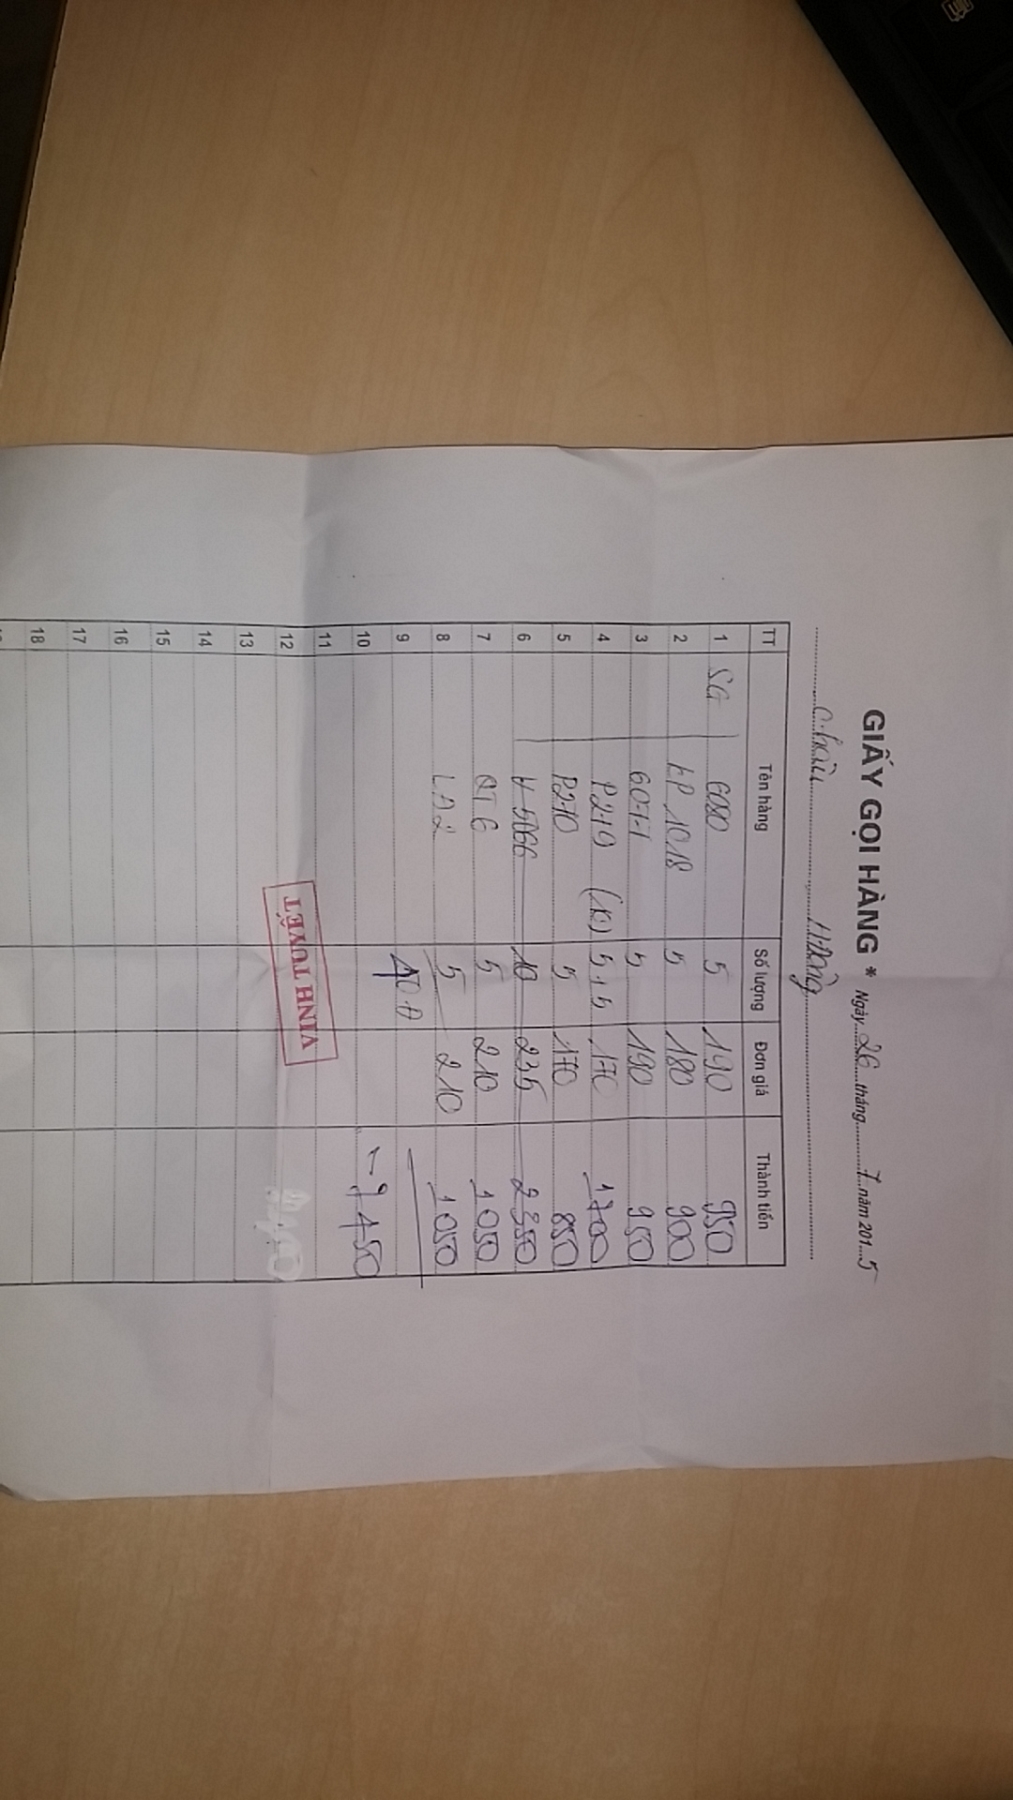 GIẤY GỌI HÀNG * Ngày 26 tháng 7 năm 2015
TT Tên hàng Số lượng Đơn giá Thành tiền
1 SG 6080 5 190 950
2 LP 1018 5 180 900
3 6071 5 190 950
4 P219 (10) 5+5 170 1700
5 P210 5 170 850
6 H 5066 10 235 2350
7 QT6 5 210 1050
8 LD2 5 210 1050
9
10 9450
11
12
13
14
15
16
17
18
VINH TUYẾT